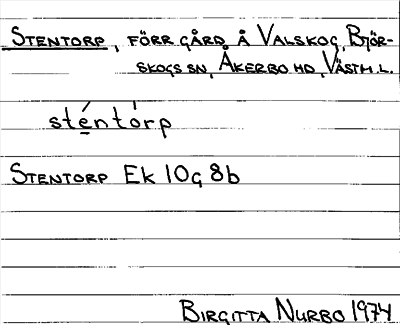 STENTORP, FÖRR GÅRD Å VALSKOG, BJÖR-
SKOGS SN, ÅKERBO HD, VÄSTM.L.
sténtórp
STENTORP Ek 10g 8b
BIRGITTA NURBO 1974